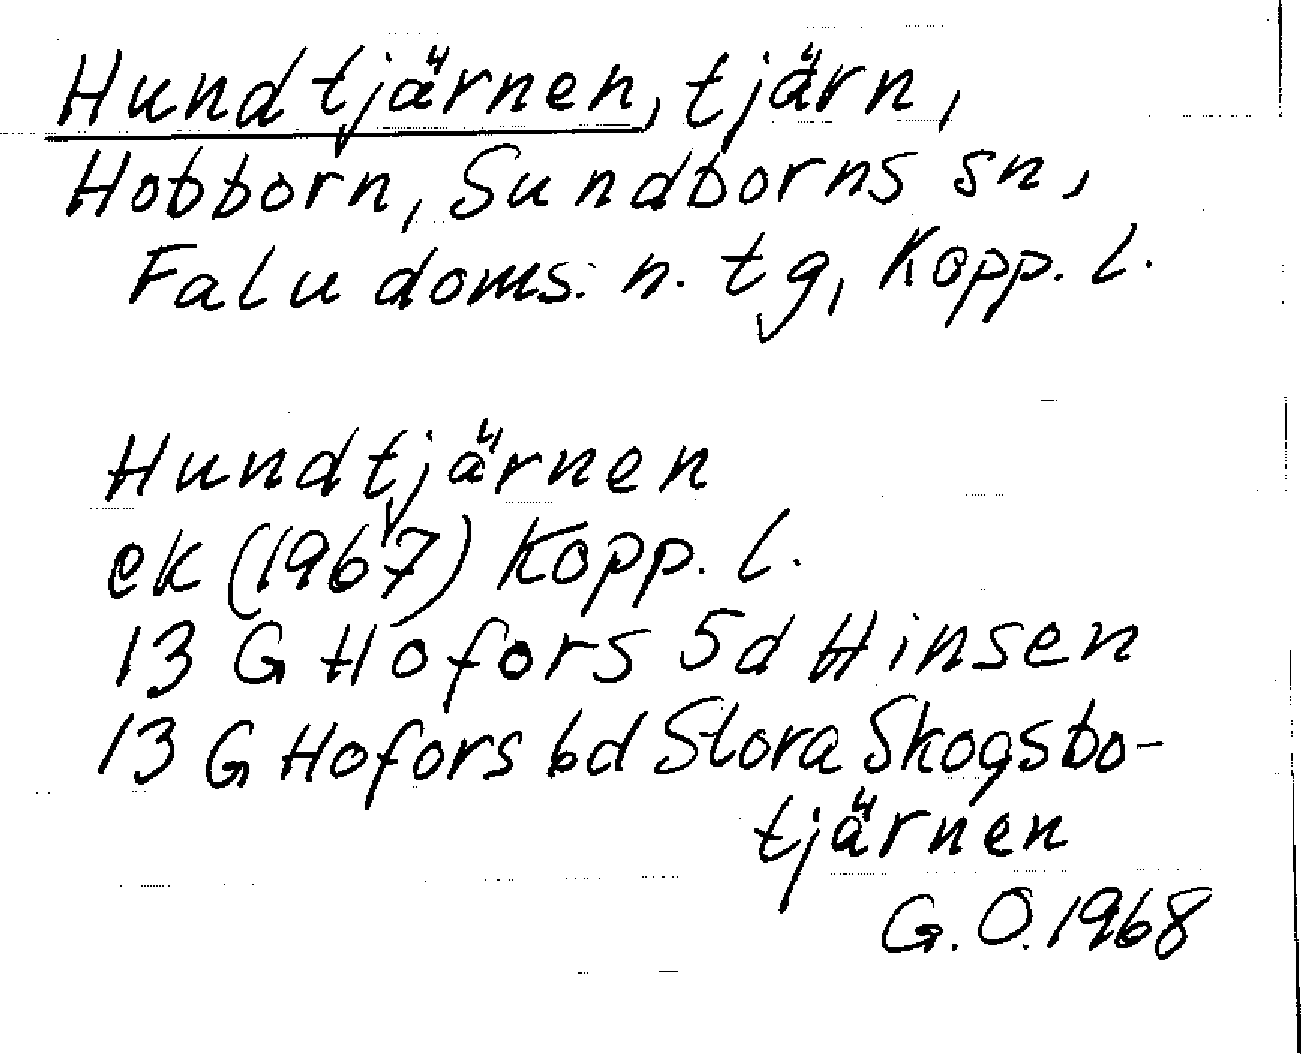 Hundtjärnen, tjärn,
Hobborn, Sundborns sn,
Falu doms. n. tg, Kopp. l.
Hundtjärnen
ek (1967) Kopp. l.
13 G Hofors 5d Hinsen
13 G Hofors 6d Stora Skogsbo-
tjärnen
G. O. 1968